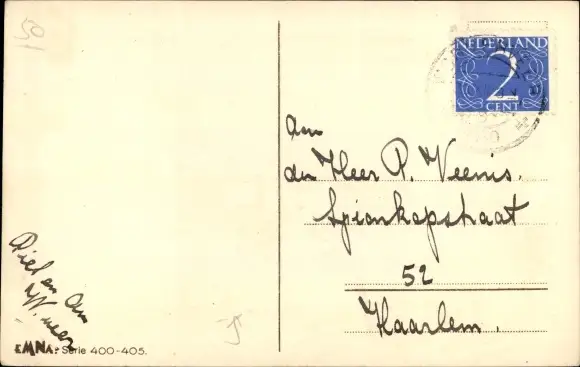 50
NEDERLAND
2
CENT
Aan
den Heer P. Veenis.
Spionkopstraat
52
Haarlem.
Piet en
EMNA. Serie 400-405.